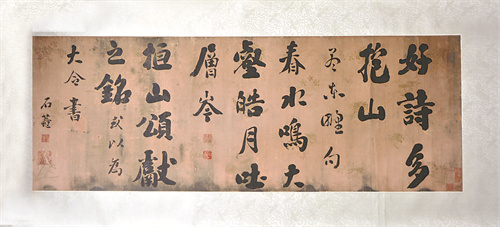 好詩多
抱山
孟東壄句
春水鳴大
壑皓月吐
層岑
桓山頌獻
之銘或以為
大令書
石菴